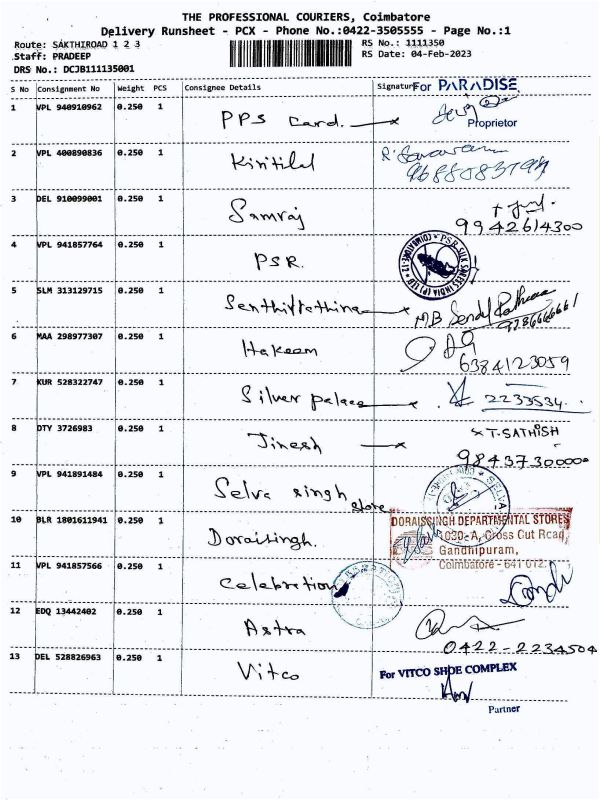 THE PROFESSIONAL COURIERS, Coimbatore
Delivery Runsheet - PCX - Phone No.:0422-3505555 - Page No.:1
Route: SAKTHIROAD 1 2 3
Staff: PRADEEP
DRS No.: DCJB111135001
RS No.: 1111350
RS Date: 04-Feb-2023
S No Consignment No Weight PCS Consignee Details Signature For PARADISE
1 VPL 940910962 0.250 1 PPS Card.
Proprietor
2 VPL 400890836 0.250 1 Kiritilal
3 DEL 910099001 0.250 1 Samraj
9942614300
4 VPL 941857764 0.250 1 PSR.
5 SLM 313129715 0.250 1 Senthilrathina
6 MAA 298977307 0.250 1 Hakeem
6384123059
7 KUR 528322747 0.250 1 Silver palace 2233534
8 DTY 3726983 0.250 1 Jinesh x T.SATHISH
9 VPL 941891484 0.250 1 Selva singh store
SELVA
10 BLR 1801611941 0.250 1 Doraisingh.
DORAISINGH DEPARTMENTAL STORES
1030-A, Cross Cut Road
Gandhipuram,
Coimbatore - 641 012.
11 VPL 941857566 0.250 1 Celebration
12 EDQ 13442402 0.250 1 Astra
0422-2234504
13 DEL 528826963 0.250 1 Vitco
For VITCO SHOE COMPLEX
Partner